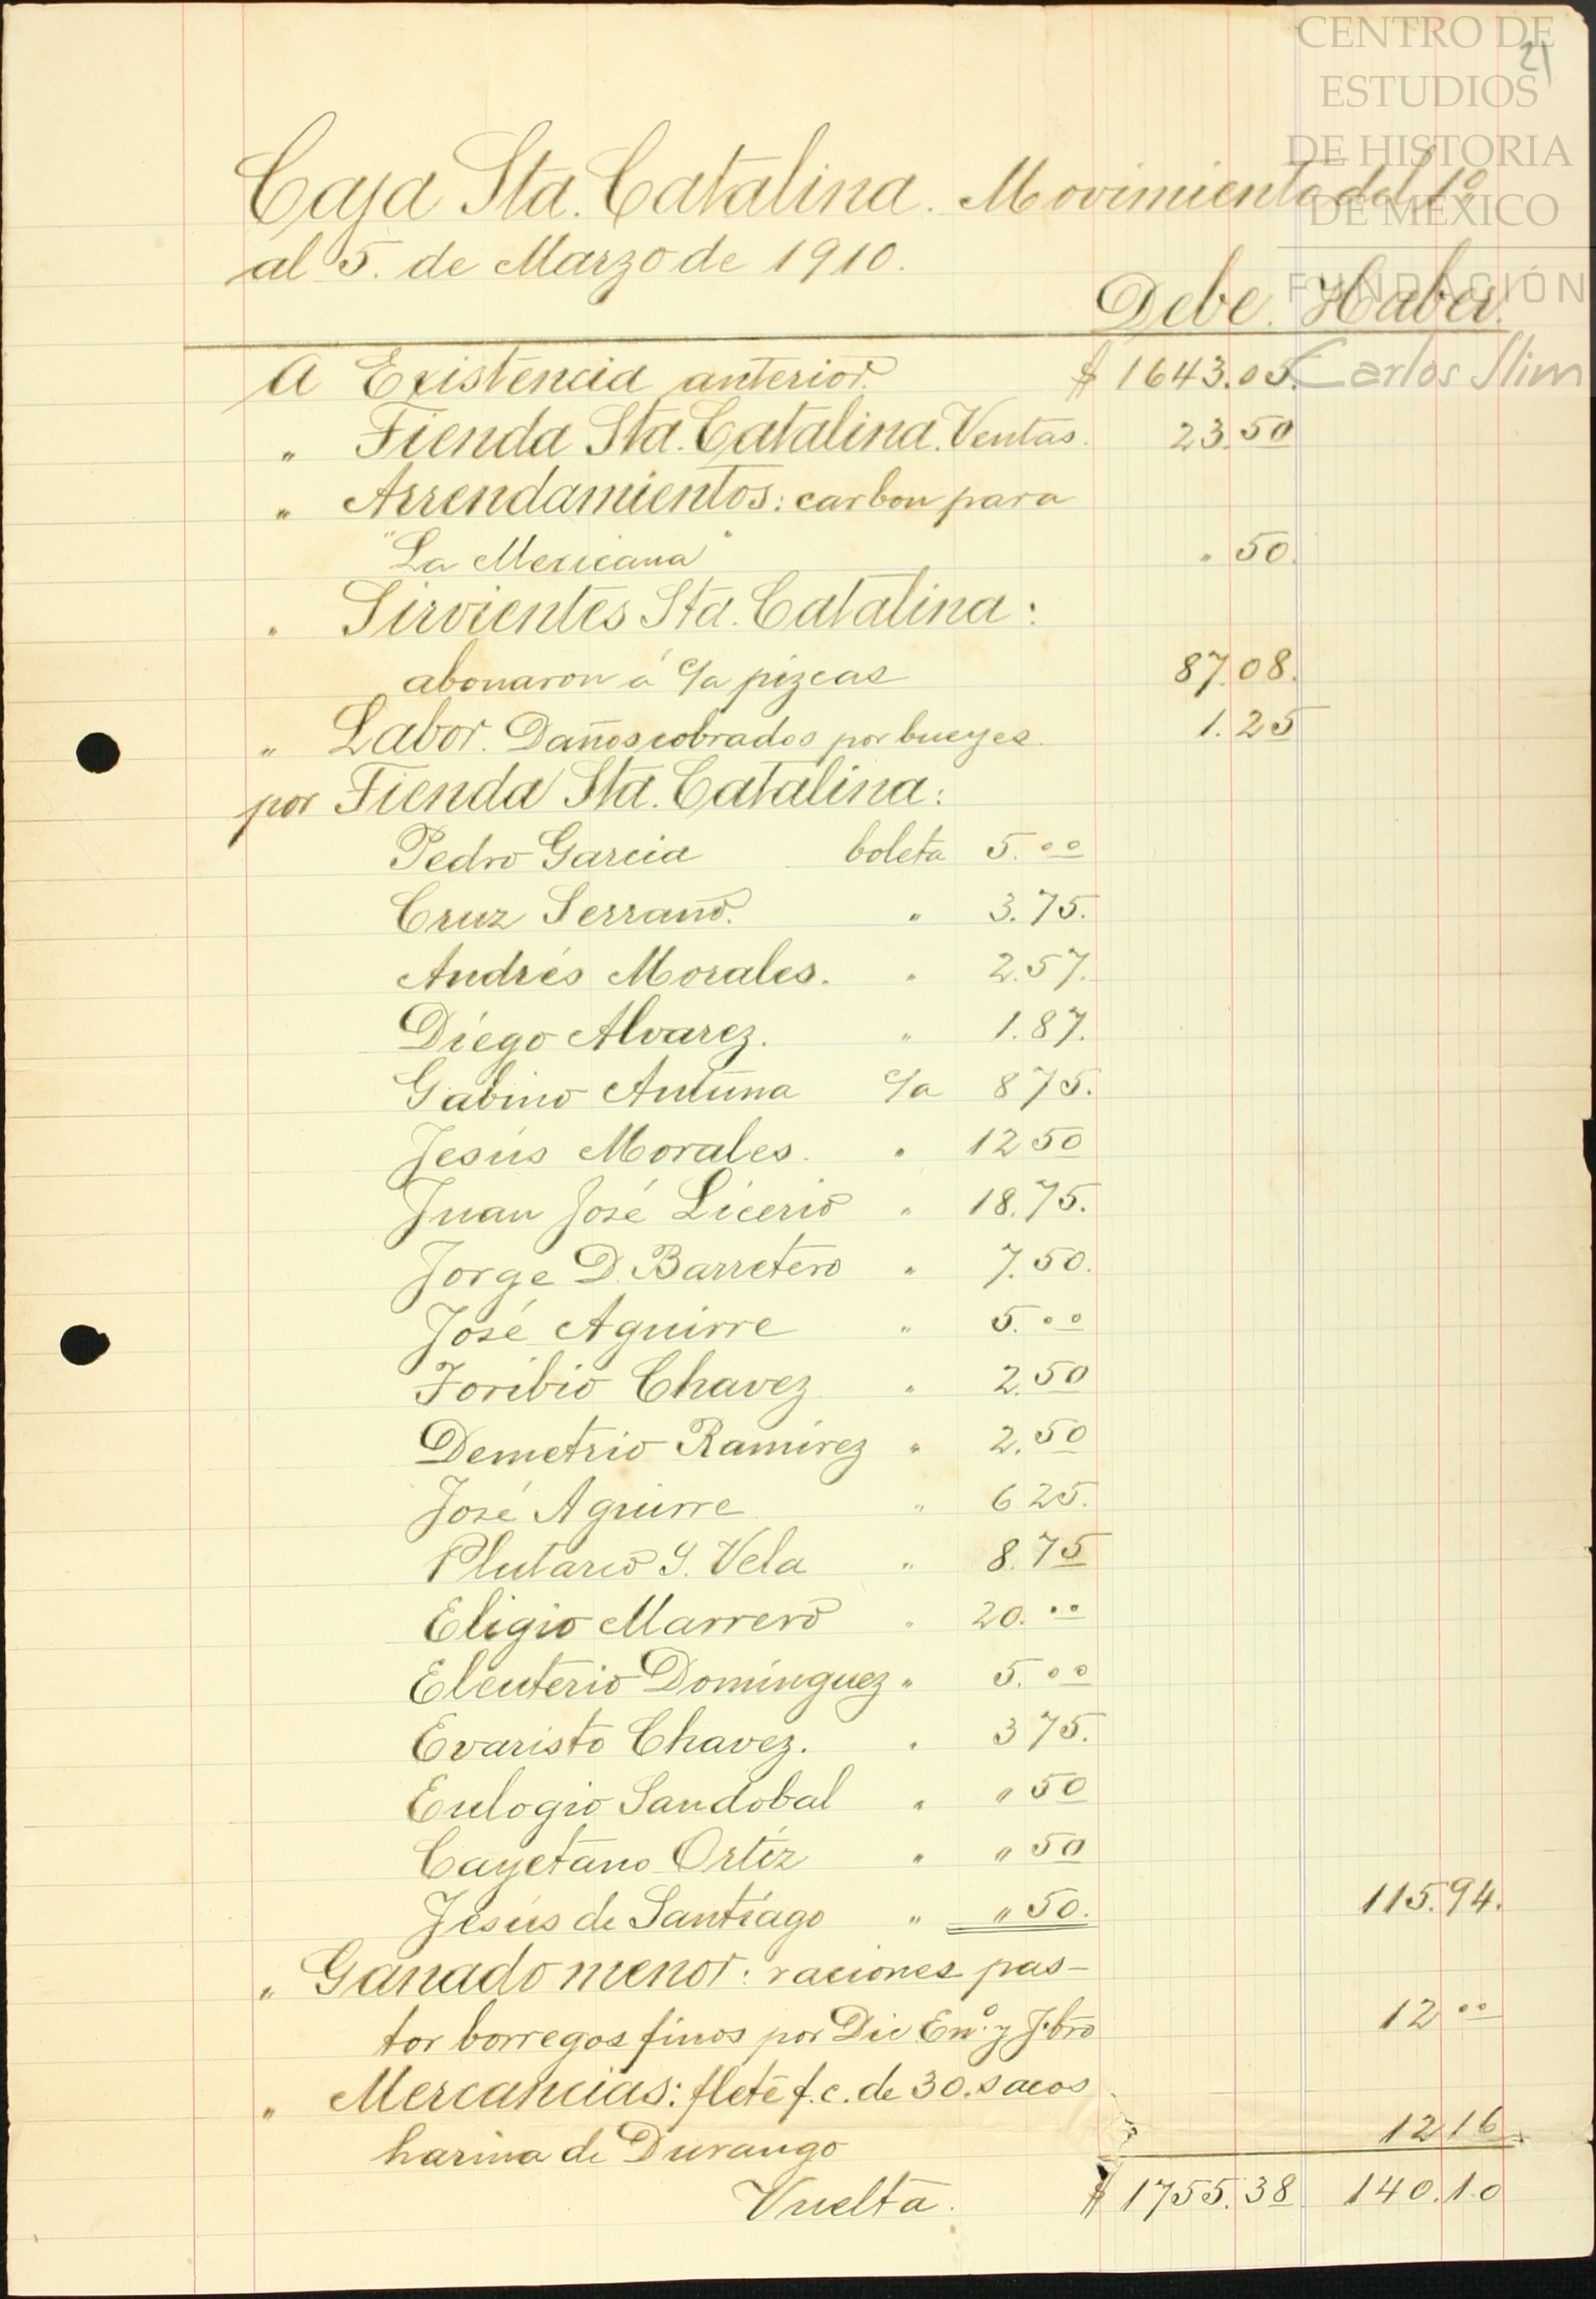 CENTRO DE
ESTUDIOS
DE HISTORIA
DE MÉXICO
FUNDACIÓN
Carlos Slim
21
Caja Sta. Catalina. Movimiento del 1º
al 5. de Marzo de 1910.
Debe. Haber.
A Existencia anterior. $ 1643.05.
" Tienda Sta. Catalina. Ventas. 23.50
" Arrendamientos: carbon para
"La Mexicana" " 50.
" Sirvientes Sta. Catalina:
abonaron á c/a pizcas 87.08.
" Labor. Daños cobrados por bueyes 1.25
por Tienda Sta. Catalina:
Pedro Garcia boleta 5.00
Cruz Serrano. " 3.75.
Andrés Morales. " 2.57.
Diego Alvarez. " 1.87.
Gabino Antuna c/a 875.
Jesús Morales. " 1250
Juan José Licerio " 18.75.
Jorge D. Barretero " 7.50.
José Aguirre " 5.00
Toribio Chavez " 2.50
Demetrio Ramirez " 2.50
José Aguirre " 625.
Plutarco Y. Vela " 8.75
Eligio Marrero " 20.00
Eleuterio Domínguez " 5.00
Evaristo Chavez. " 375.
Eulogio Sandobal " " 50
Cayetano Ortíz " " 50
Jesús de Santiago " " 50. 115.94.
" Ganado menor: raciones pas-
tor borregos finos por Dic Enº. y Fbro 12 00
" Mercancias: flete f.c. de 30. sacos
harina de Durango 1216
Vuelta. $ 1755.38 140.10